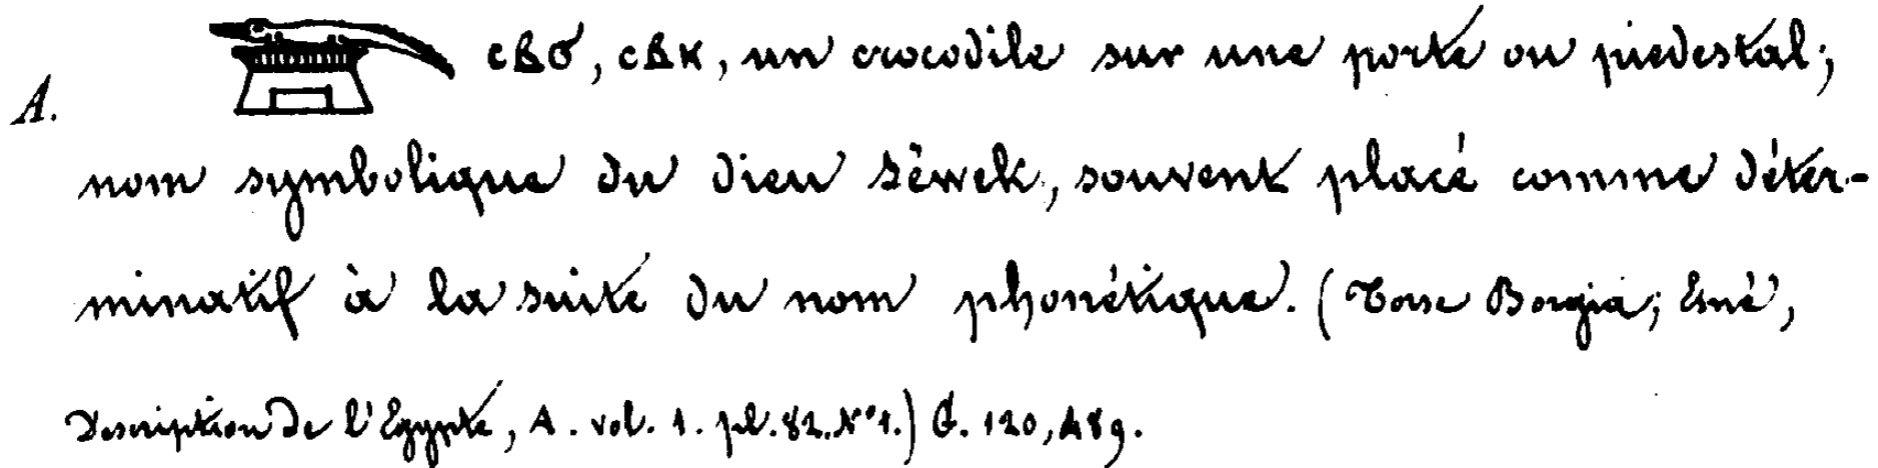 A. ⲥⲃϭ, ⲥⲃⲕ, un crocodile sur une porte ou piedestal;
nom symbolique du dieu Sêwek, souvent placé comme déter-
minatif à la suite du nom phonétique. (Torse Borgia; Esné,
Description de l'Egypte, A. vol. 1. pl. 82. N° 1.) G. 120, 489.